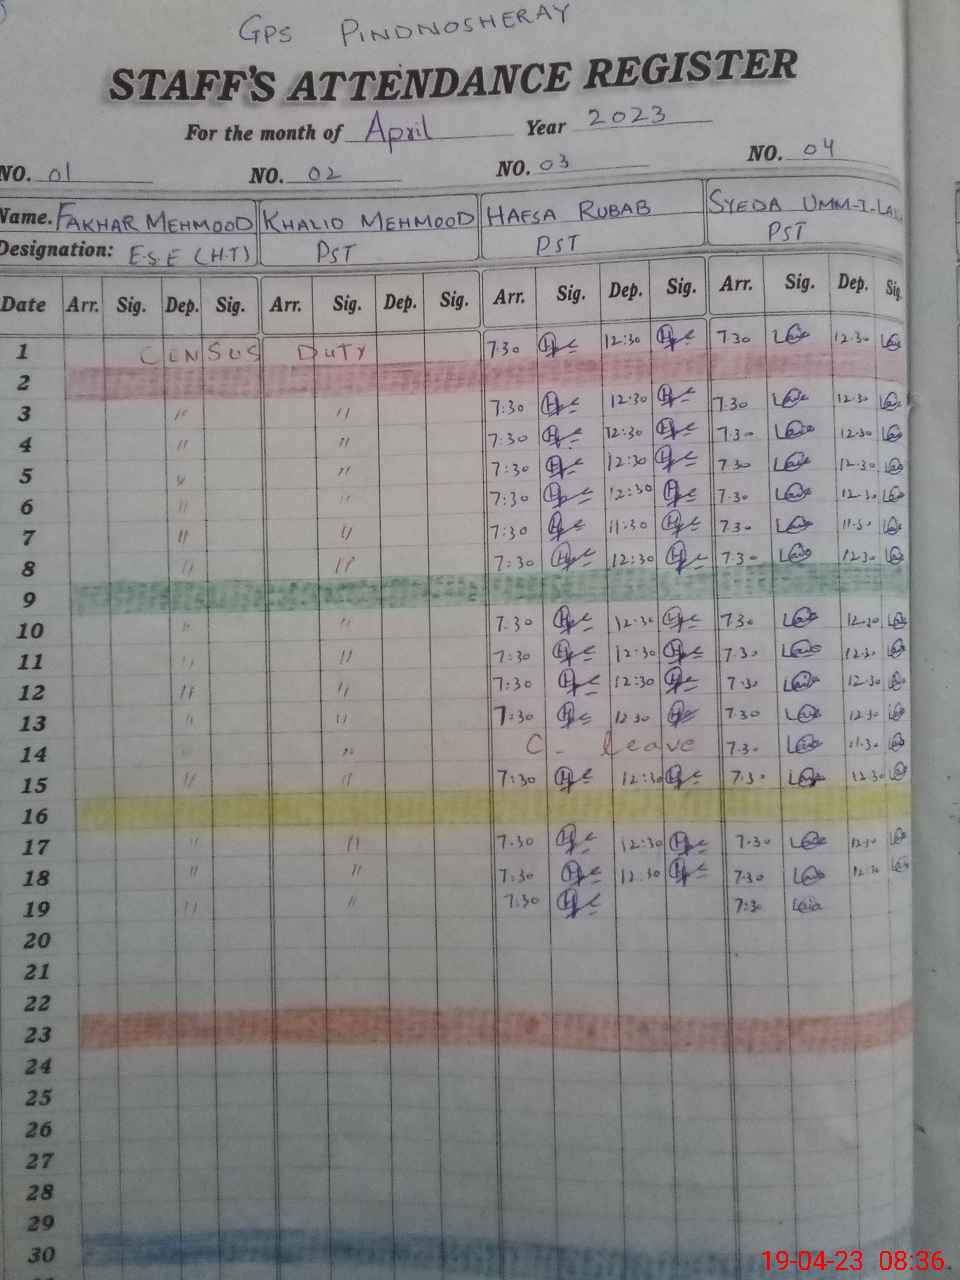 GPS PINDNOSHERAY
STAFF'S ATTENDANCE REGISTER
For the month of April Year 2023
NO. 01 NO. 02 NO. 03 NO. 04
Name. FAKHAR MEHMOOD KHALID MEHMOOD HAFSA RUBAB SYEDA UMM-I-LAI
Designation: E.S.E (H.T) PST PST PST
Date Arr. Sig. Dep. Sig. Arr. Sig. Dep. Sig. Arr. Sig. Dep. Sig. Arr. Sig. Dep. Sig.
1 CENSUS DUTY 7:30 12:30 7:30 12:30
2
3 " " 7:30 12:30 7:30 12:30
4 " " 7:30 12:30 7:30 12:30
5 " " 7:30 12:30 7:30 12:30
6 " " 7:30 12:30 7:30 12:30
7 " " 7:30 11:30 7:30 11:30
8 " " 7:30 12:30 7:30 12:30
9
10 " " 7:30 12:30 7:30 12:30
11 " " 7:30 12:30 7:30 12:30
12 " " 7:30 12:30 7:30 12:30
13 " " 7:30 12:30 7:30 12:30
14 " " C. leave 7:30 11:30
15 " " 7:30 12:30 7:30 12:30
16
17 " " 7:30 12:30 7:30 12:30
18 " " 7:30 12:30 7:30 12:30
19 " " 7:30 7:30
20
21
22
23
24
25
26
27
28
29
30
19-04-23 08:36.